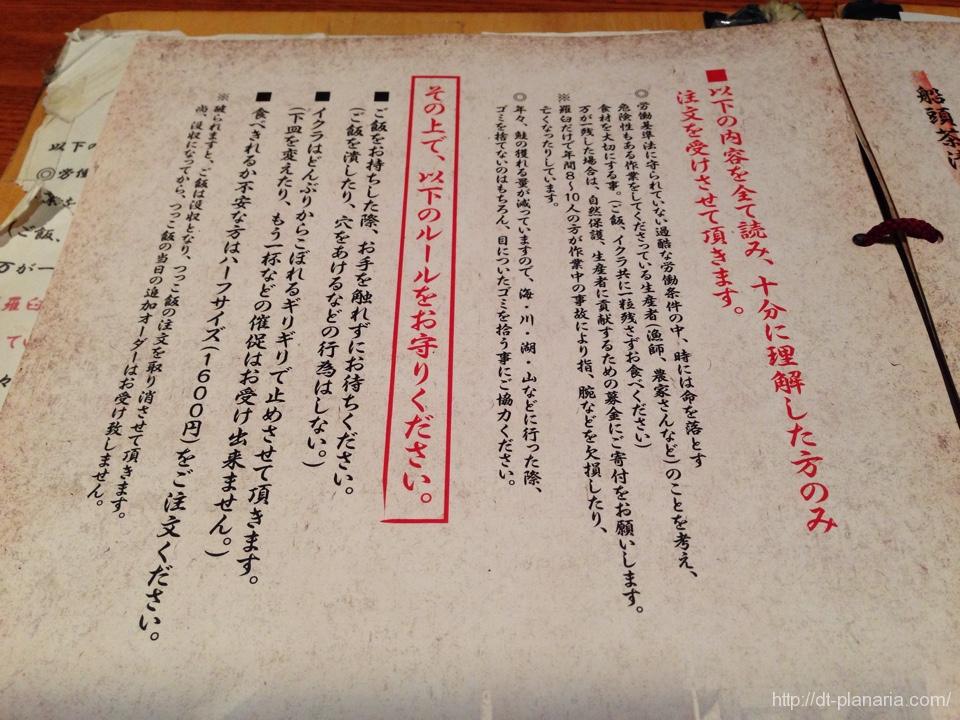 船頭茶漬
■以下の内容を全て読み、十分に理解した方のみ
注文を受けさせて頂きます。
◎労働基準法に守られていない過酷な労働条件の中、時には命を落とす
危険性もある作業をしてくださっている生産者(漁師、農家さんなど)のことを考え、
食材を大切にする事。(ご飯、イクラ共に一粒残さずお食べください)
万が一残した場合は、自然保護、生産者に貢献するための募金にご寄付をお願いします。
※羅臼だけで年間8〜10人の方が作業中の事故により指、腕などを欠損したり、
亡くなったりしています。
◎年々、鮭の獲れる量が減っていますので、海・川・湖・山などに行った際、
ゴミを捨てないのはもちろん、目についたゴミを拾う事にご協力ください。
その上で、以下のルールをお守りください。
■ご飯をお待ちした際、お手を触れずにお待ちください。
(ご飯を潰したり、穴をあけるなどの行為はしない。)
■イクラはどんぶりからこぼれるギリギリで止めさせて頂きます。
(下皿を変えたり、もう一杯などの催促はお受け出来ません。)
■食べきれるか不安な方はハーフサイズ(1600円)をご注文ください。
※破られますと、ご飯は没収となり、つっこ飯の注文を取り消させて頂きます。
尚、没収になってから、つっこ飯の当日の追加オーダーはお受け致しません。
以下の
◎労働
(ご飯、
万が一
羅臼
てい
々
http://dt-planaria.com/